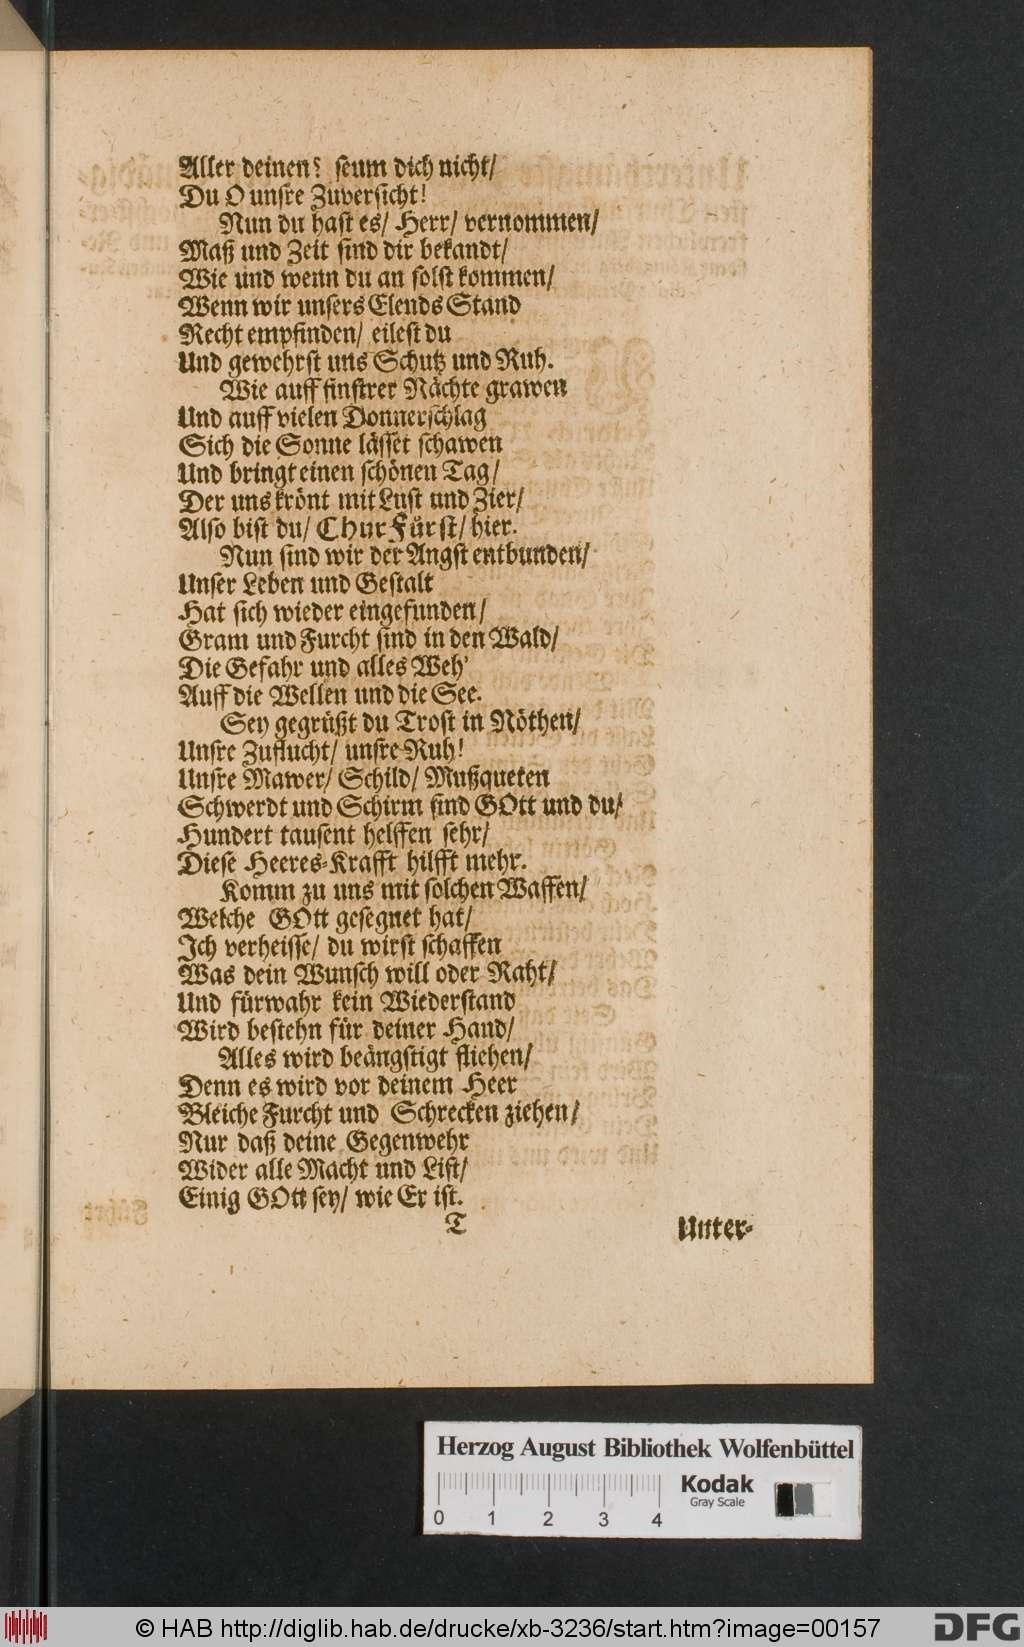 Aller deinen? seum dich nicht/
Du O unsre Zuversicht!
Nun du hast es/ Herr/ vernommen/
Maß und Zeit sind dir bekandt/
Wie und wenn du an solst kommen/
Wenn wir unsers Elends Stand
Recht empfinden/ eilest du
Und gewehrst uns Schutz und Ruh.
Wie auff finstrer Nächte grawen
Und auff vielen Donnerschlag
Sich die Sonne lässet schawen
Und bringt einen schönen Tag/
Der uns krönt mit Lust und Zier/
Also bist du/ ChurFürst/ hier.
Nun sind wir der Angst entbunden/
Unser Leben und Gestalt
Hat sich wieder eingefunden/
Gram und Furcht sind in den Wald/
Die Gefahr und alles Weh'
Auff die Wellen und die See.
Sey gegrüßt du Trost in Nöthen/
Unsre Zuflucht/ unsre Ruh!
Unsre Mawer/ Schild/ Mußqueten
Schwerdt und Schirm sind GOtt und du/
Hundert tausent helffen sehr/
Diese Heeres-Krafft hilfft mehr.
Komm zu uns mit solchen Waffen/
Welche GOtt gesegnet hat/
Ich verheisse/ du wirst schaffen
Was dein Wunsch will oder Raht/
Und fürwahr kein Wiederstand
Wird bestehn für deiner Hand/
Alles wird beängstigt fliehen/
Denn es wird vor deinem Heer
Bleiche Furcht und Schrecken ziehen/
Nur daß deine Gegenwehr
Wider alle Macht und List/
Einig GOtt sey/ wie Er ist.
T Unter-
Herzog August Bibliothek Wolfenbüttel
Kodak
Gray Scale
0 1 2 3 4
© HAB http://diglib.hab.de/drucke/xb-3236/start.htm?image=00157
DFG